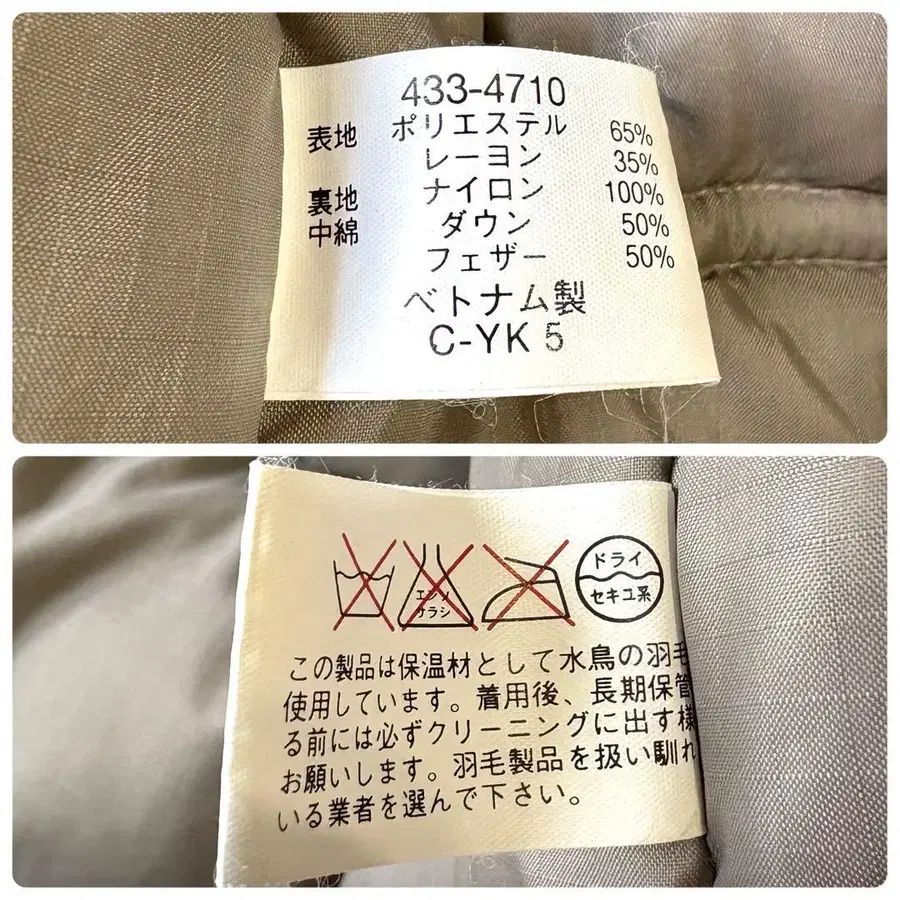 433-4710
表地 ポリエステル 65%
レーヨン 35%
裏地 ナイロン 100%
中綿 ダウン 50%
フェザー 50%
ベトナム製
C-YK 5
エンソ
サラシ
ドライ
セキユ系
この製品は保温材として水鳥の羽毛
使用しています。着用後、長期保管
る前には必ずクリーニングに出す様
お願いします。羽毛製品を扱い馴れ
いる業者を選んで下さい。